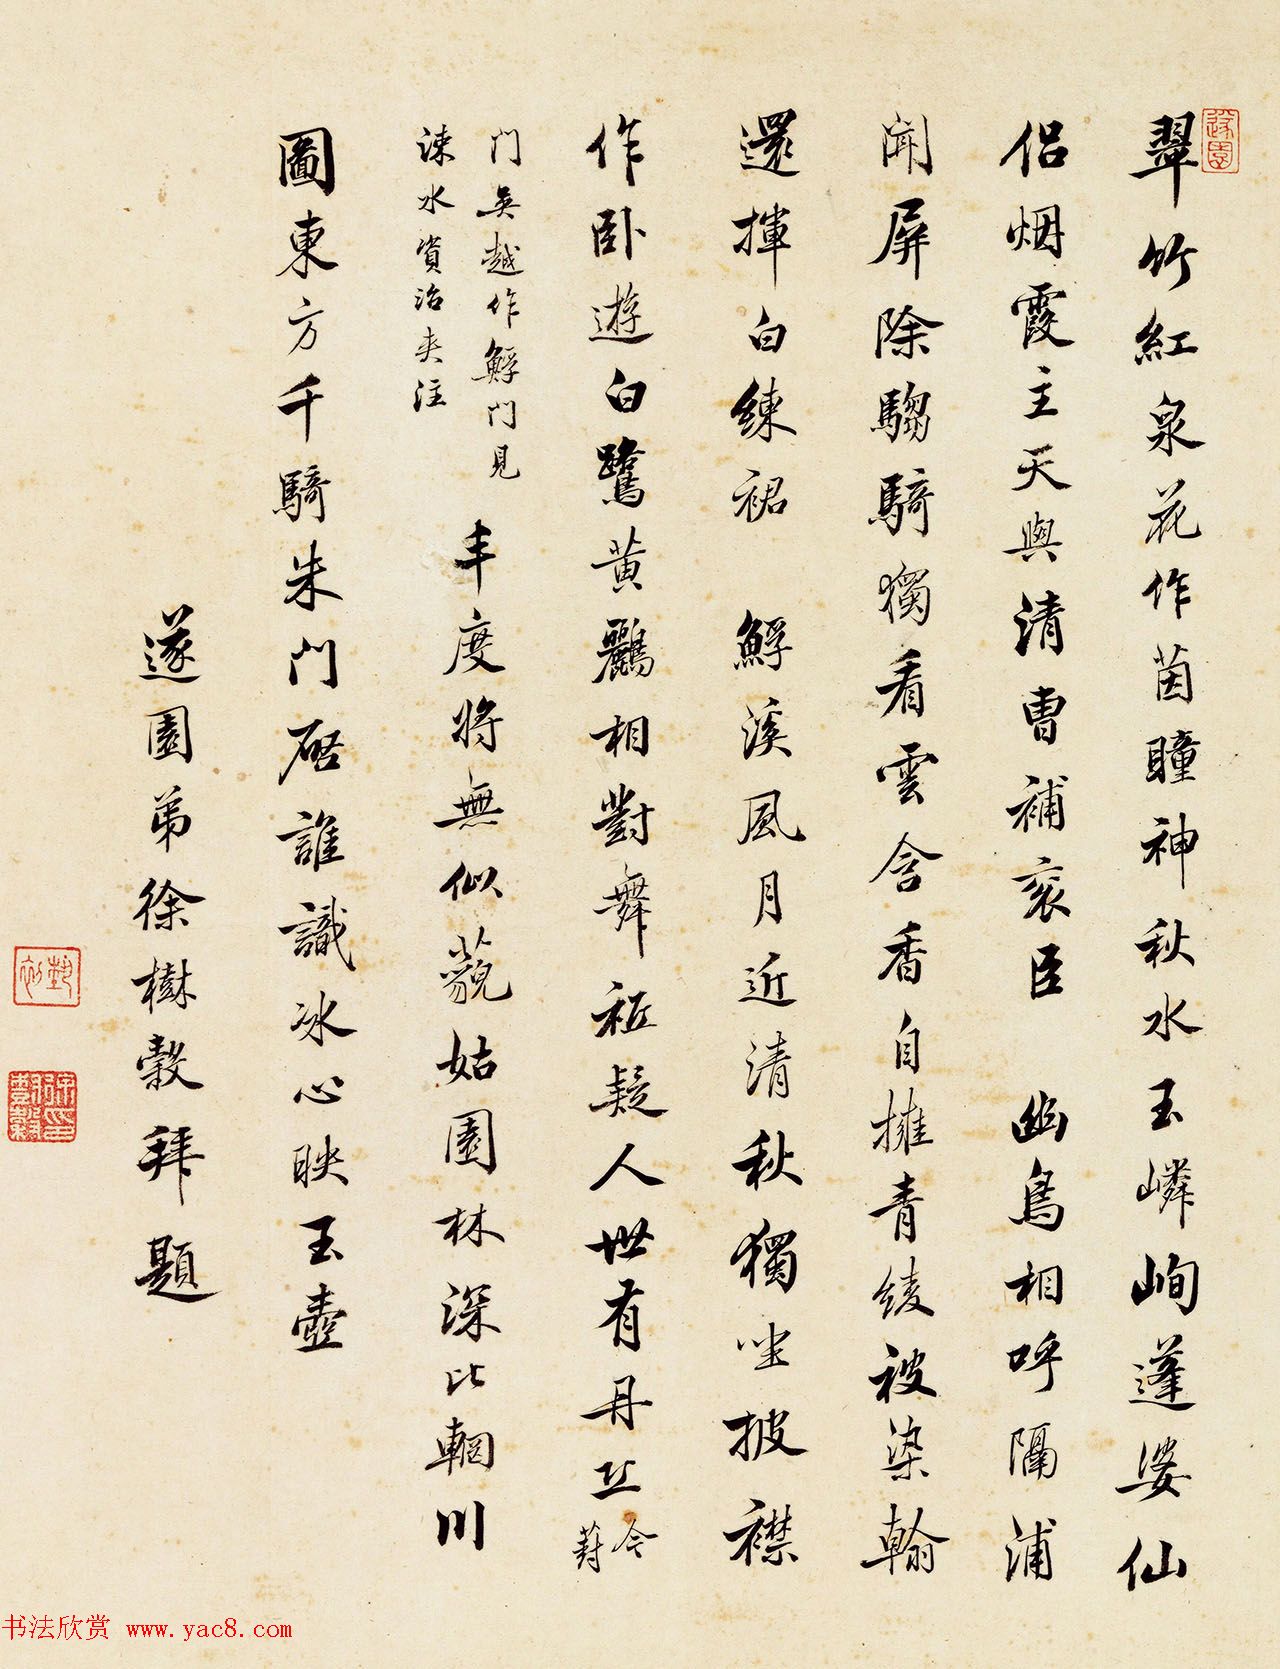 遂園
翠竹紅泉花作茵瞳神秋水玉嶙峋蓬婆仙
侶烟霞主天與清曹補衮臣 幽鳥相呼隔浦
聞屏除騶騎獨看雲含香自擁青綾被染翰
還揮白練裙 鮮溪風月近清秋獨坐披襟
作卧遊白鷺黄鸝相對舞秪疑人世有丹丘 今葑
門吳越作鮮門見
涑水資治夾注
丰度將無似藐姑園林深比輞川
圖東方千騎朱門啓誰識冰心映玉壺
遂園弟徐樹穀拜題
藝初
徐樹穀印
书法欣赏 www.yac8.com